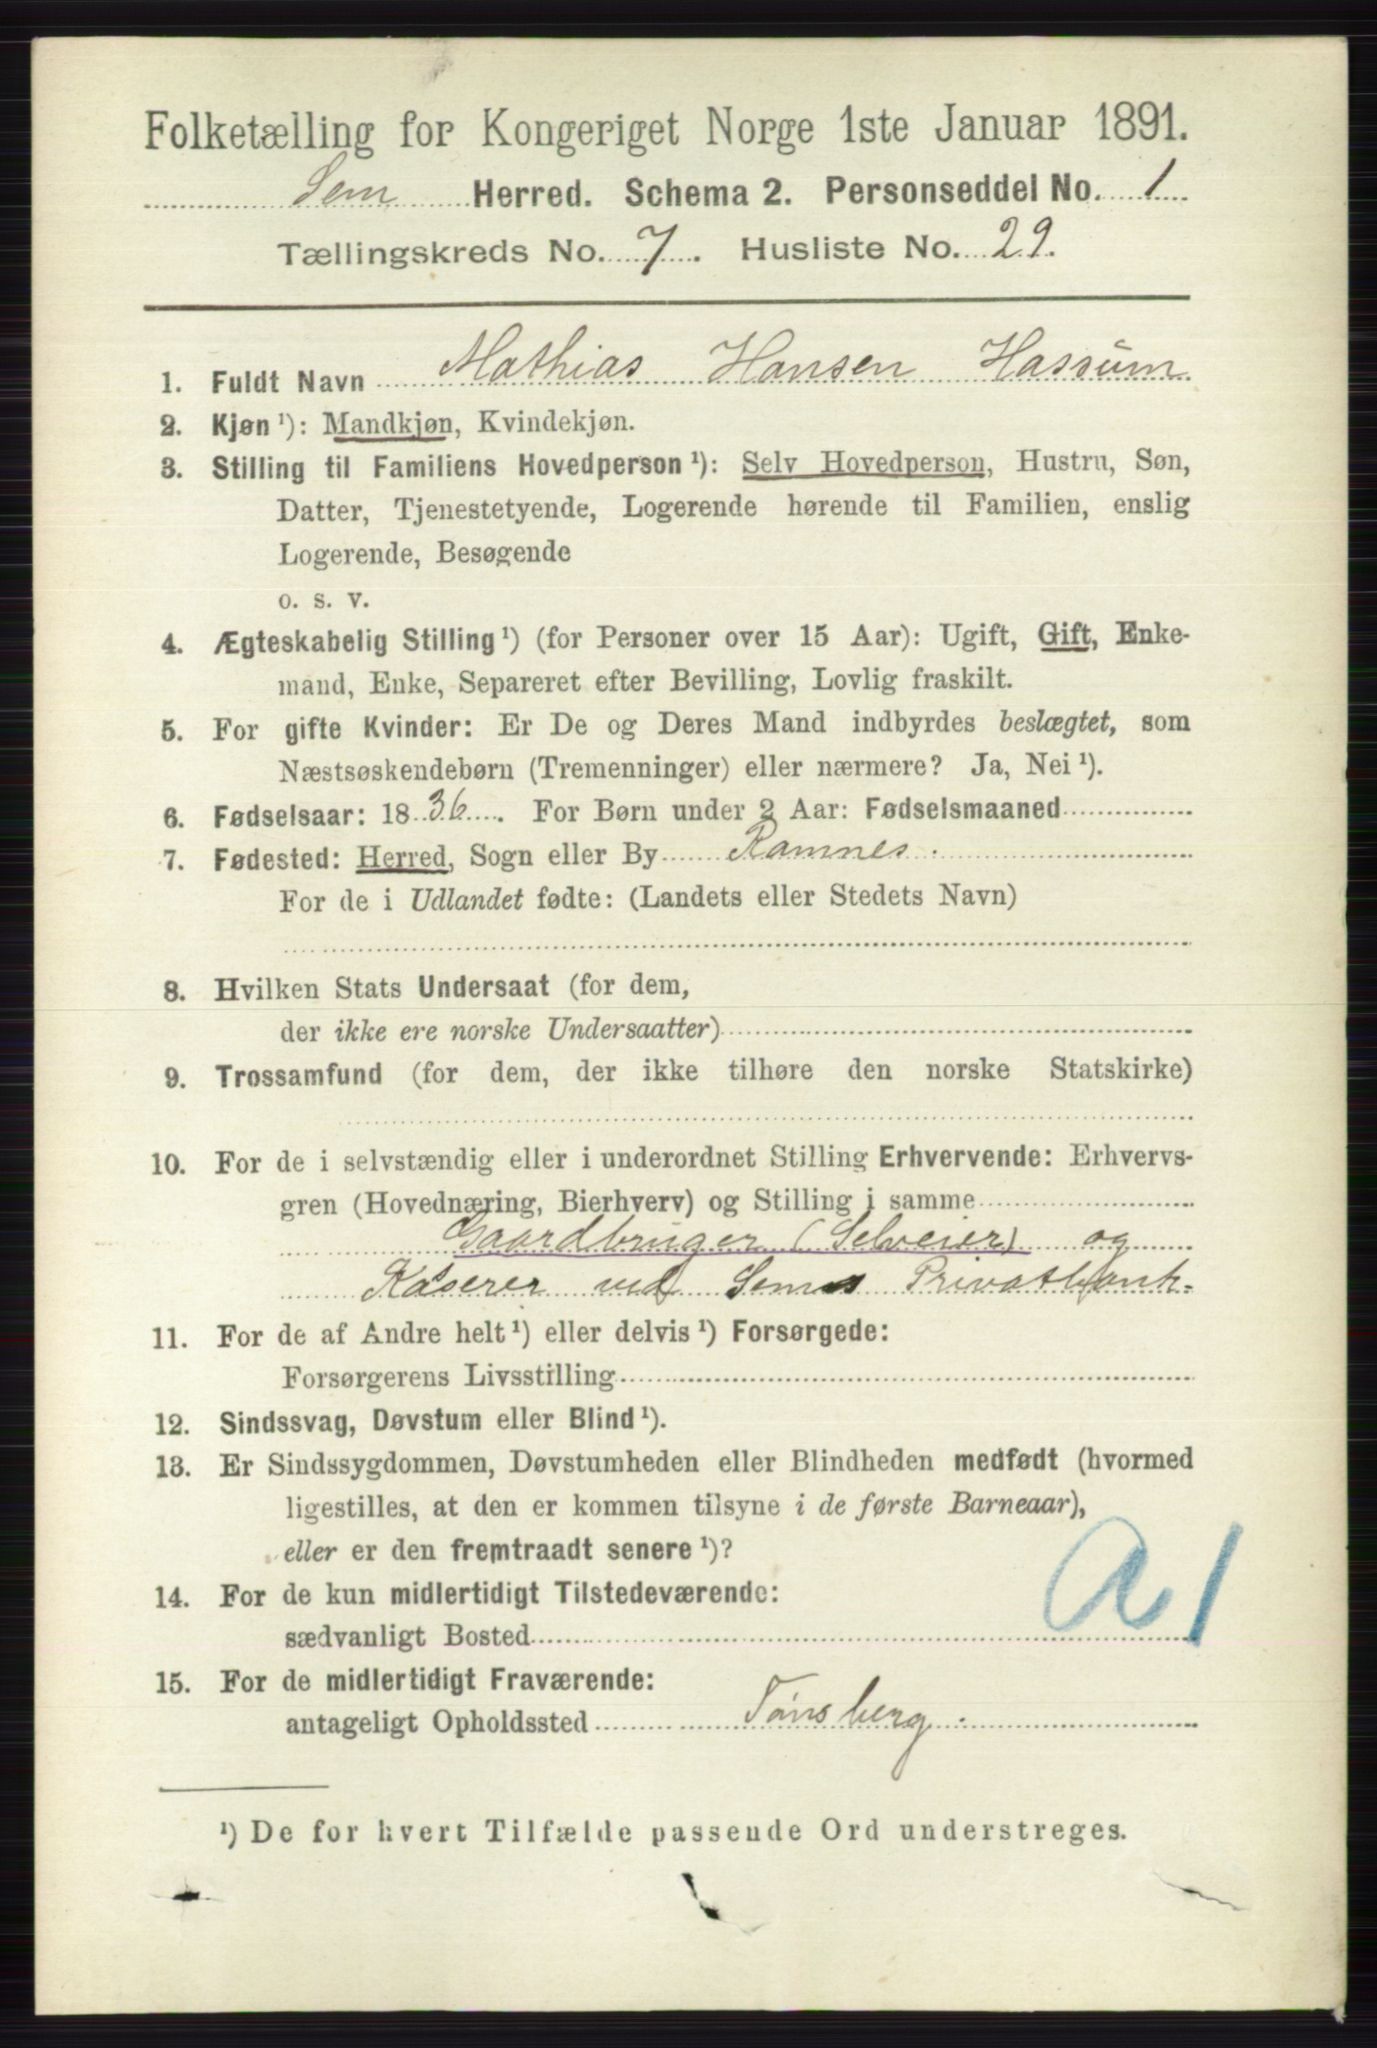 Folketælling for Kongeriget Norge 1ste Januar 1891.
Sem Herred. Schema 2. Personseddel No. 1
Tællingskreds No. 7. Husliste No. 29.
1. Fuldt Navn Mathias Hansen Hassum
2. Kjøn ¹): Mandkjøn, Kvindekjøn.
3. Stilling til Familiens Hovedperson ¹): Selv Hovedperson, Hustru, Søn,
Datter, Tjenestetyende, Logerende hørende til Familien, enslig
Logerende, Besøgende
o. s. v.
4. Ægteskabelig Stilling ¹) (for Personer over 15 Aar): Ugift, Gift, Enke-
mand, Enke, Separeret efter Bevilling, Lovlig fraskilt.
5. For gifte Kvinder: Er De og Deres Mand indbyrdes beslægtet, som
Næstsøskendebørn (Tremenninger) eller nærmere? Ja, Nei ¹).
6. Fødselsaar: 1836. For Børn under 2 Aar: Fødselsmaaned
7. Fødested: Herred, Sogn eller By Ramnes.
For de i Udlandet fødte: (Landets eller Stedets Navn)
8. Hvilken Stats Undersaat (for dem,
der ikke ere norske Undersaatter)
9. Trossamfund (for dem, der ikke tilhøre den norske Statskirke)
10. For de i selvstændig eller i underordnet Stilling Erhvervende: Erhvervs-
gren (Hovednæring, Bierhverv) og Stilling i samme
Gaardbruger (Selveier) og
Kaserer ved Sems Privatbank.
11. For de af Andre helt ¹) eller delvis ¹) Forsørgede:
Forsørgerens Livsstilling
12. Sindssvag, Døvstum eller Blind ¹).
13. Er Sindssygdommen, Døvstumheden eller Blindheden medfødt (hvormed
ligestilles, at den er kommen tilsyne i de første Barneaar),
eller er den fremtraadt senere ¹)?
a 1
14. For de kun midlertidigt Tilstedeværende:
sædvanligt Bosted
15. For de midlertidigt Fraværende:
antageligt Opholdssted Tønsberg.
¹) De for hvert Tilfælde passende Ord understreges.